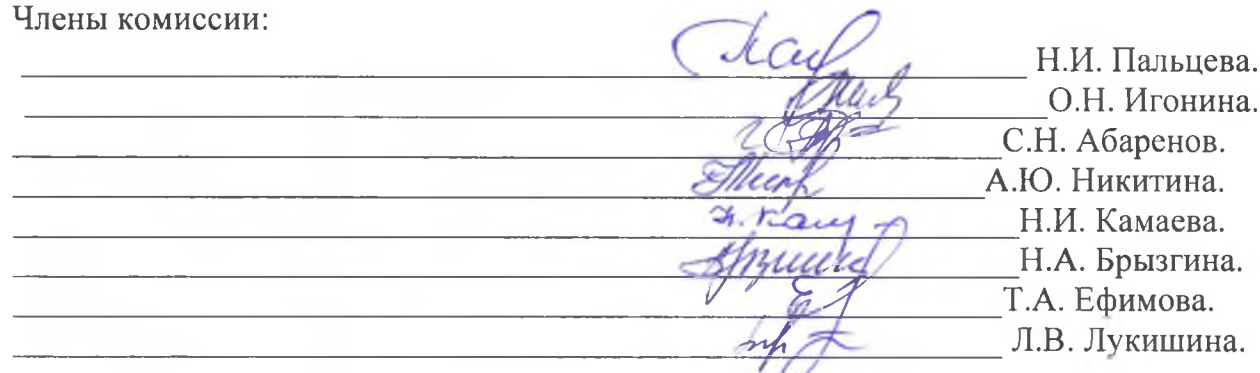 Члены комиссии:
Н.И. Пальцева.
О.Н. Игонина.
С.Н. Абаренов.
А.Ю. Никитина.
Н.И. Камаева.
Н.А. Брызгина.
Т.А. Ефимова.
Л.В. Лукишина.